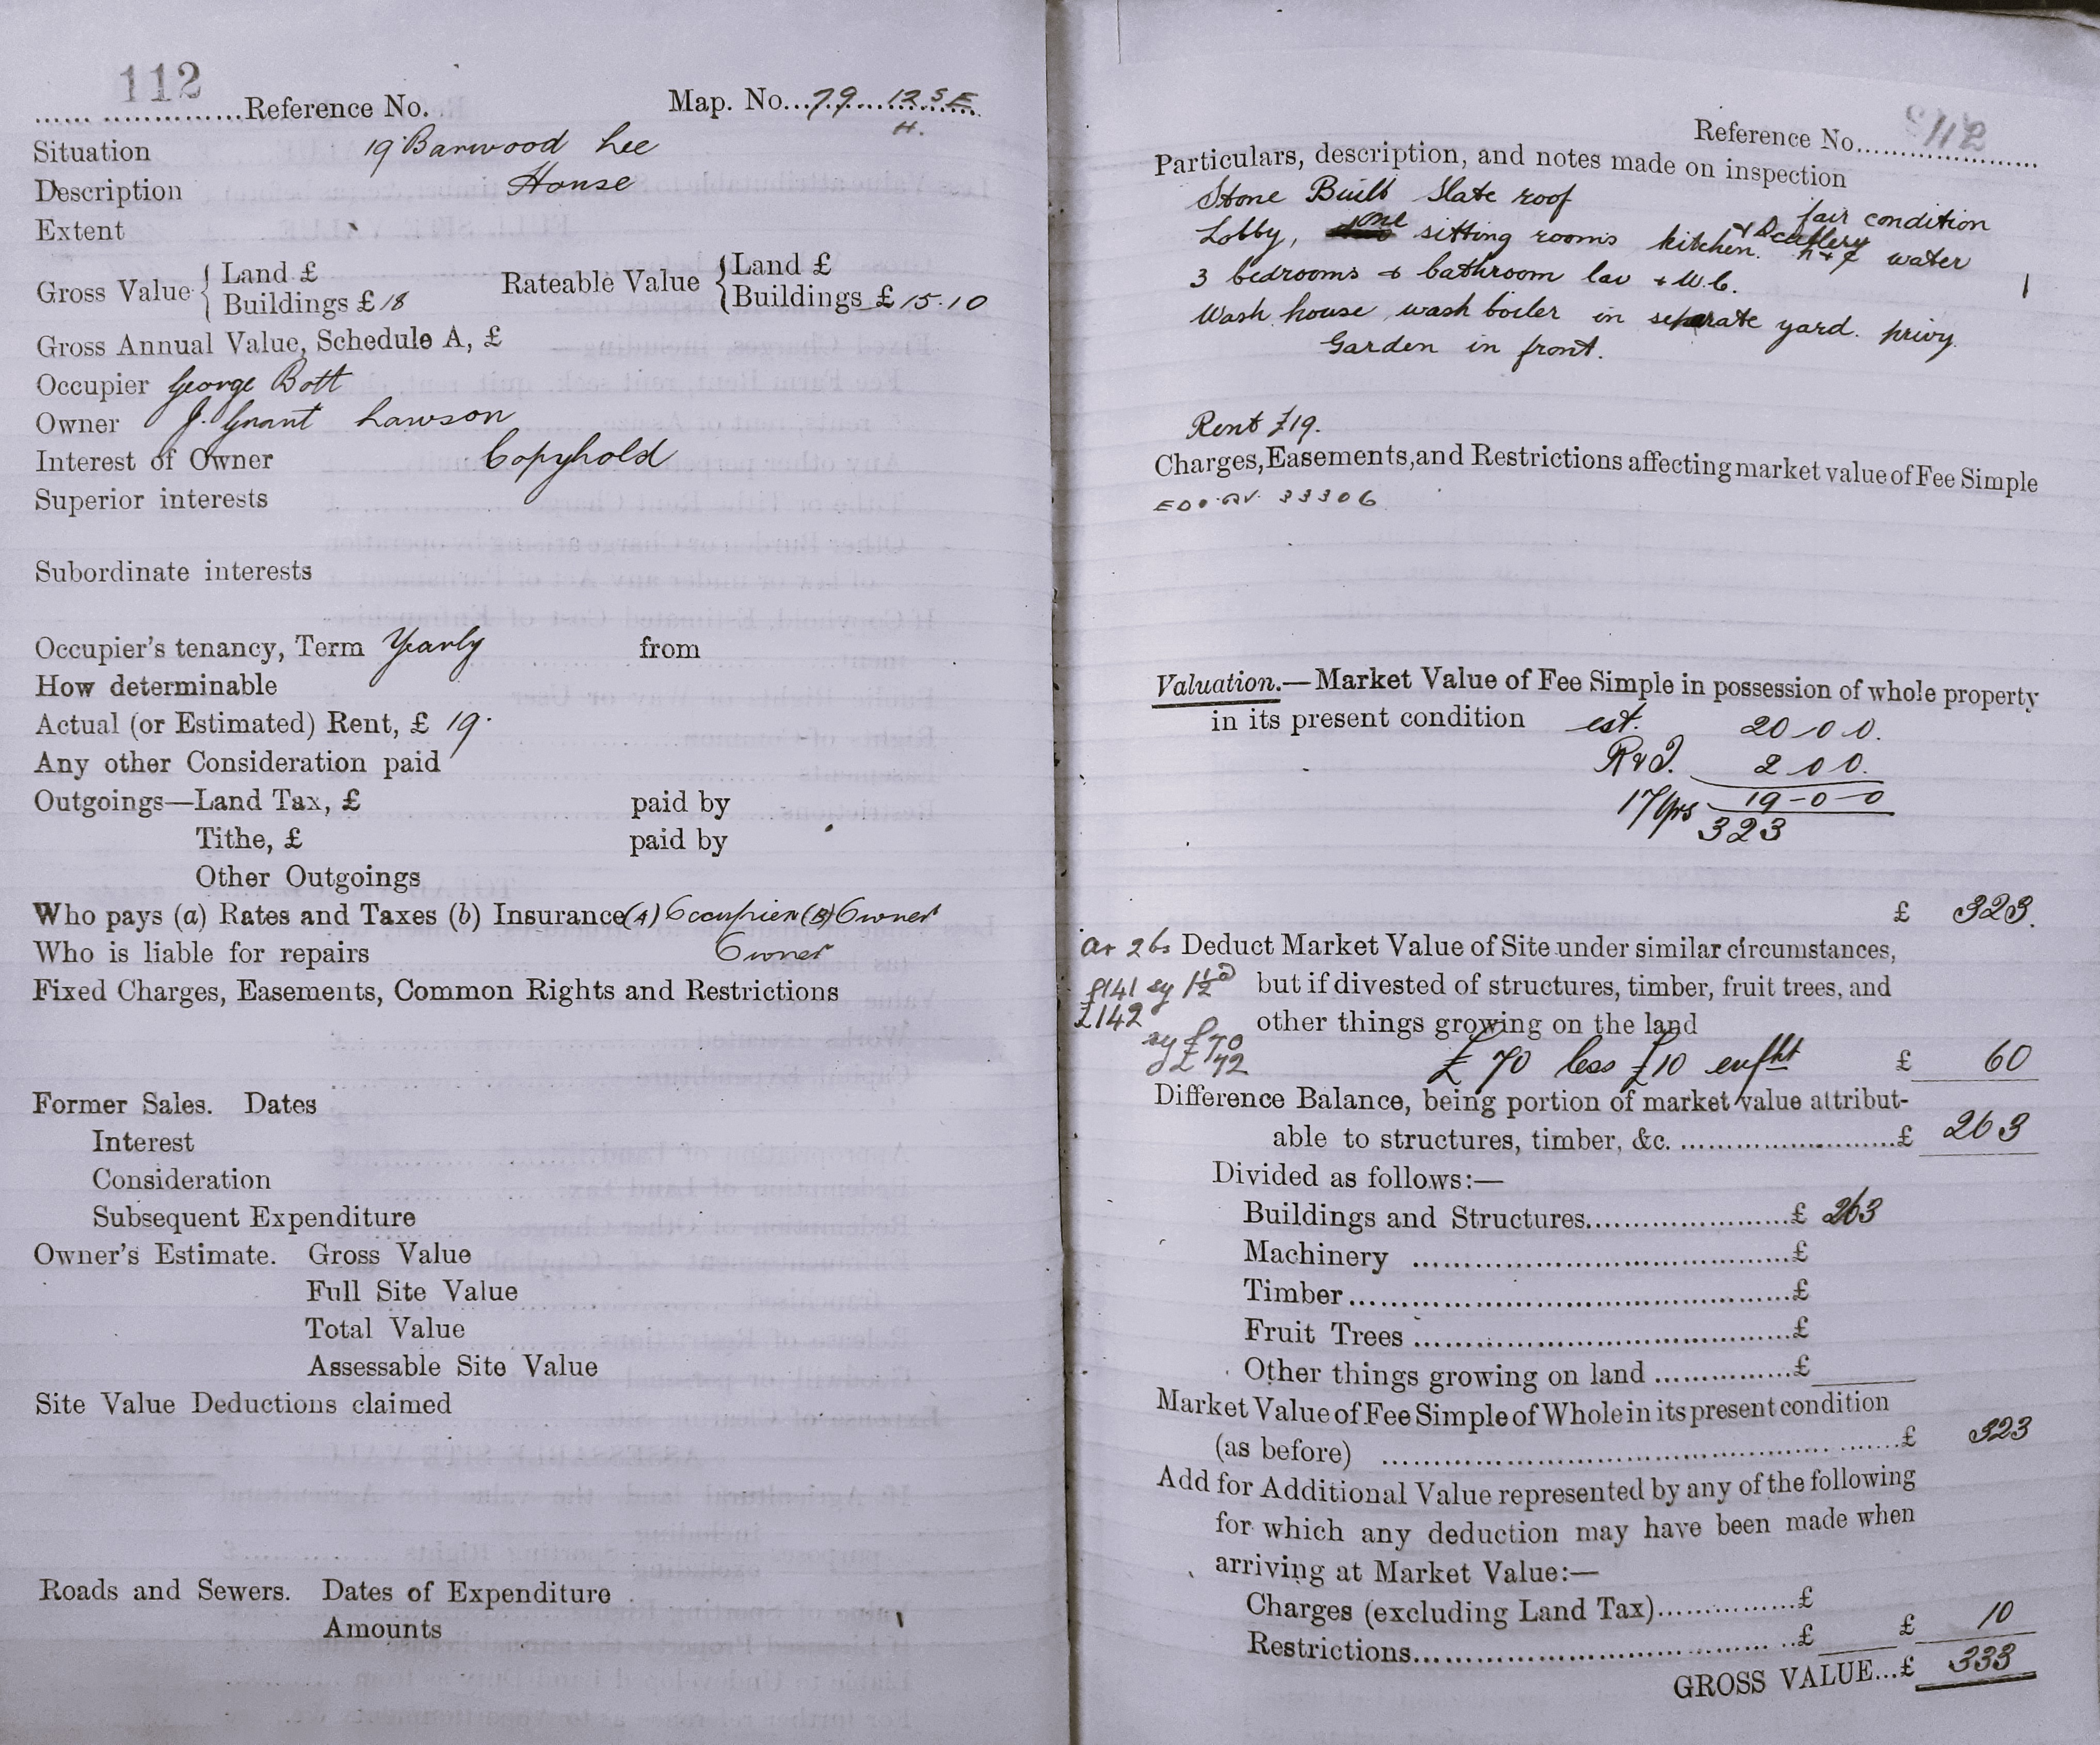 112
Reference No. Map. No. 79 12 S E
H.
Situation 19 Barwood Lee
Description House
Extent
Gross Value { Land £ Rateable Value { Land £
Buildings £ 18 Buildings £ 15.10
Gross Annual Value, Schedule A, £
Occupier George Bott
Owner J. Grant Lawson
Interest of Owner Copyhold
Superior interests
Subordinate interests
Occupier's tenancy, Term Yearly from
How determinable
Actual (or Estimated) Rent, £ 19.
Any other Consideration paid
Outgoings—Land Tax, £ paid by
Tithe, £ paid by
Other Outgoings
Who pays (a) Rates and Taxes (b) Insurance (A) Occupier (B) Owner
Who is liable for repairs Owner
Fixed Charges, Easements, Common Rights and Restrictions
Former Sales. Dates
Interest
Consideration
Subsequent Expenditure
Owner's Estimate. Gross Value
Full Site Value
Total Value
Assessable Site Value
Site Value Deductions claimed
Roads and Sewers. Dates of Expenditure
Amounts
Reference No. 112
Particulars, description, and notes made on inspection
Stone Built Slate roof
fair condition
Lobby, one sitting rooms kitchen. + Scullery h + c water
3 bedrooms + bathroom lav + W.C.
Wash house, wash boiler in separate yard. privy
Garden in front.
Rent £19.
Charges, Easements, and Restrictions affecting market value of Fee Simple
33306
Valuation.—Market Value of Fee Simple in possession of whole property
in its present condition est. 20-0-0.
2 0 0.
17 yrs 19-0-0
323
£ 323.
Deduct Market Value of Site under similar circumstances,
£141 sy 1½d but if divested of structures, timber, fruit trees, and
£142 other things growing on the land
sy £70
£72
£70 less £10 £ 60
Difference Balance, being portion of market value attribut-
able to structures, timber, &c. £ 263
Divided as follows:—
Buildings and Structures £ 263
Machinery £
Timber £
Fruit Trees £
Other things growing on land £
Market Value of Fee Simple of Whole in its present condition
(as before) £ 323
Add for Additional Value represented by any of the following
for which any deduction may have been made when
arriving at Market Value:—
Charges (excluding Land Tax) £
Restrictions £ £ 10
GROSS VALUE...£ 333